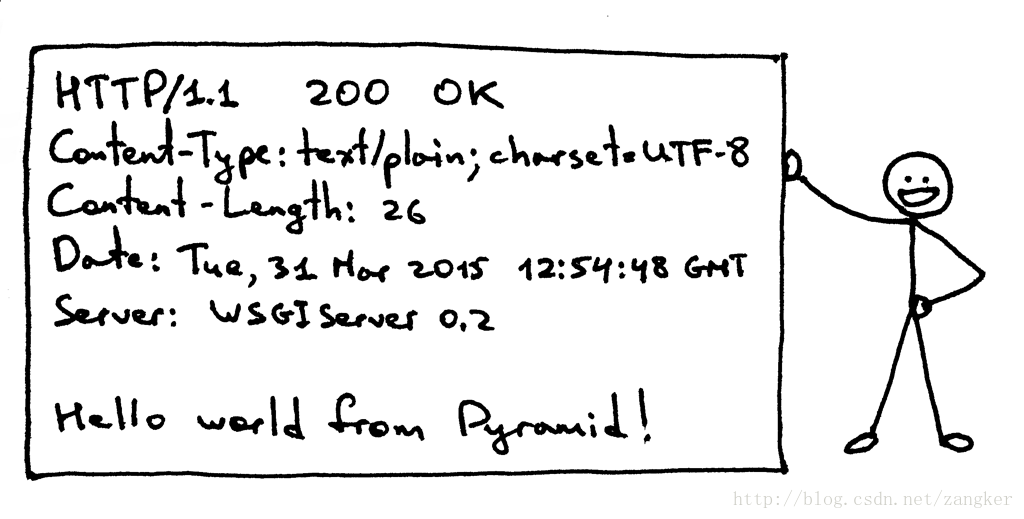 HTTP/1.1 200 OK
Content-Type: text/plain; charset=UTF-8
Content-Length: 26
Date: Tue, 31 Mar 2015 12:54:48 GMT
Server: WSGIServer 0.2
Hello world from Pyramid!
http://blog.csdn.net/zangker